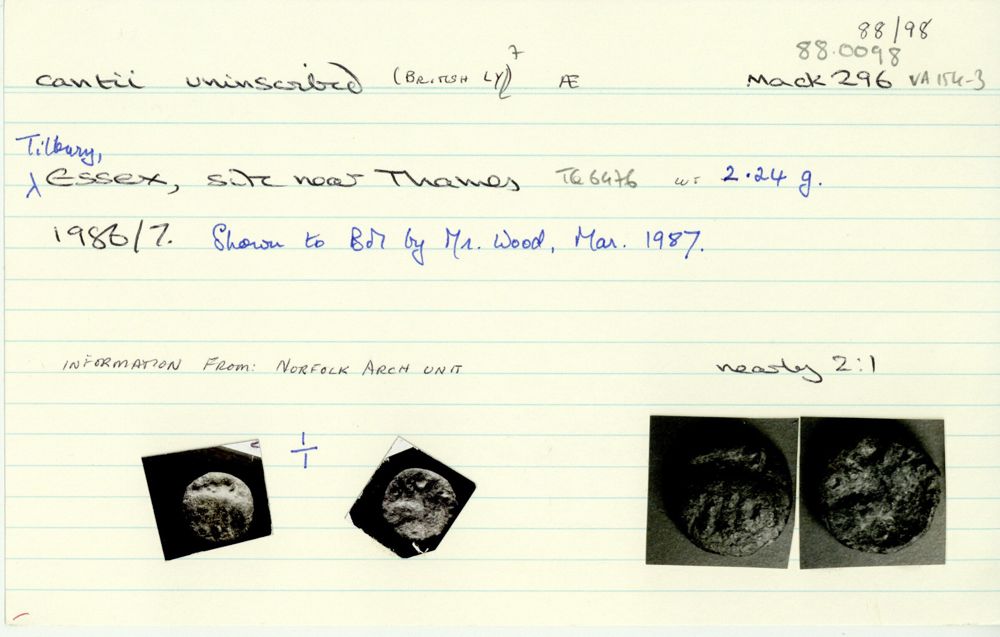 88/98
88.0098
cantii uninscribed (BRITISH LY)7 Æ Mack 296 VA 154-3
Tilbury,
λ Essex, site near Thames TQ6476 w: 2.24 g.
1986/7. Shown to BM by Mr. Wood, Mar. 1987.
INFORMATION FROM: NORFOLK ARCH UNIT nearly 2:1
1/1